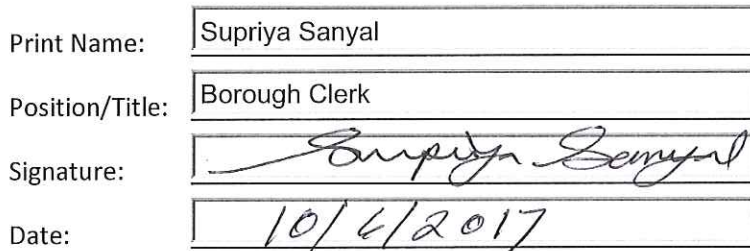 Print Name: Supriya Sanyal
Position/Title: Borough Clerk
Signature: Supriya Sanyal
Date: 10/6/2017